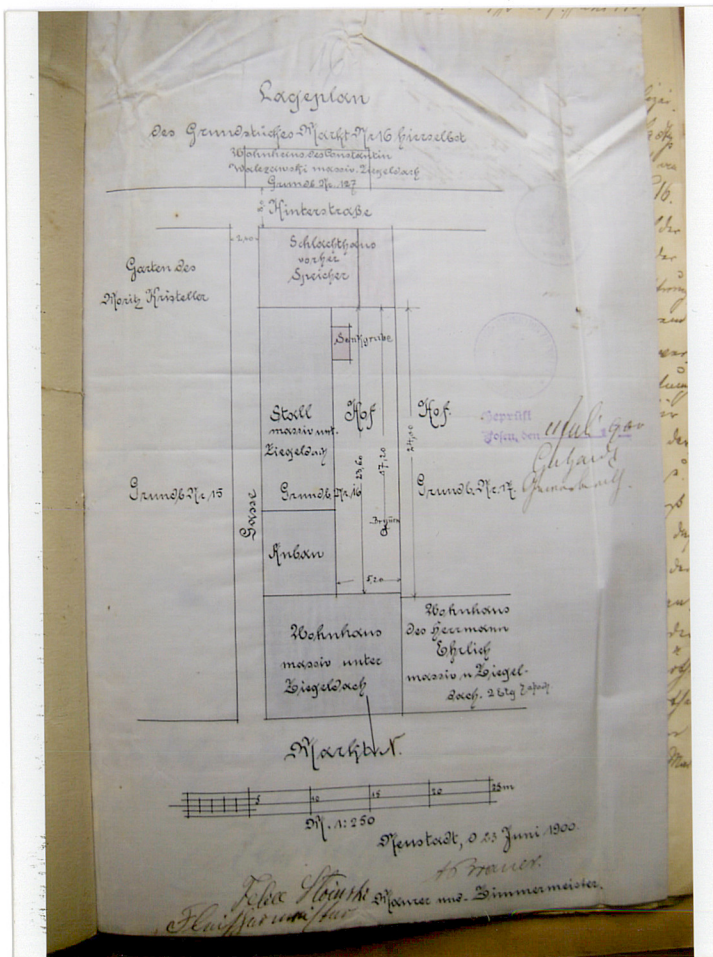 Lageplan
des Grundstückes Markt Nr 16 hierselbst
Wohnhaus des Constantin
Walczewski massiv. Ziegeldach
Grundb. Nr. 127
Hinterstraße
2,10
Schlachthaus
vorher
Speicher
Garten des
Moritz Kristeller
Senkgrube
Stall
massiv unt.
Ziegeldach
Hof
Hof.
Geprüft
Posen, den Juli 900
Grundb Nr. 15
Gasse
Grundb. Nr 16
23,60
17,20
24,10
Grundb. Nr. 17.
Anbau
5,20
Wohnhaus
massiv unter
Ziegeldach
Wohnhaus
des Herrmann
Ehrlich
massiv u. Ziegel-
dach.
Markt N.
5 10 15 20 25m
M. 1:250
Neustadt, d 23 Juni 1900.
A Brauer.
Maurer und Zimmermeister.
Felix Stoinski